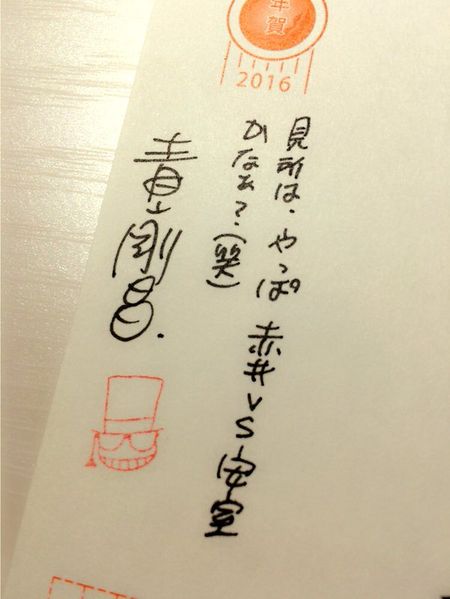 年賀
2016
見所は、やっぱ赤井VS安室
かなぁ?(笑)
青山剛昌.